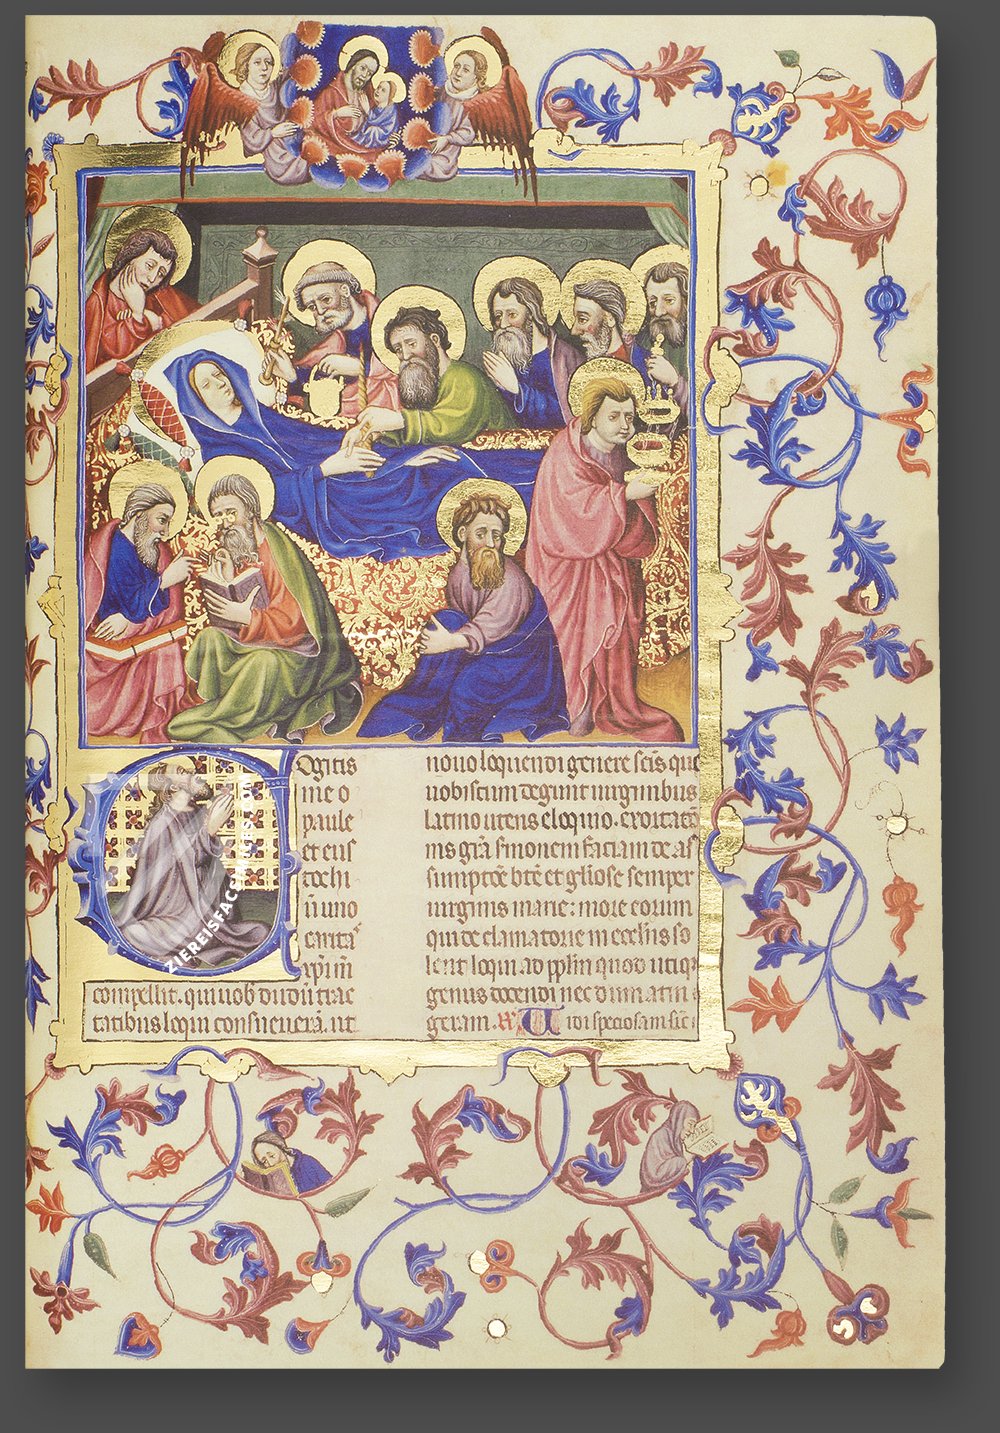 ogitis
me o
paule
et eus
tochi
ū uno
carita
xp̄i m̄
compellit. qui uob̄ dudū trac
tatibus loqui consueuerā. ut
nouo loquendi genere sc̄is que
uobiscum degunt uirginibus
latino utens eloquio. exortato
ms gr̄a smonem faciam de as
sumptōe btē et gl̄iose semper
uirginis marie: more eorum
qui declamatorie in ecclīis so
lent loqui ad pplm̄ quod utiq;
genus docendi nec dum attin
geram. R Uidi speciosam sic
ZIEREISFACSIMILES.COM